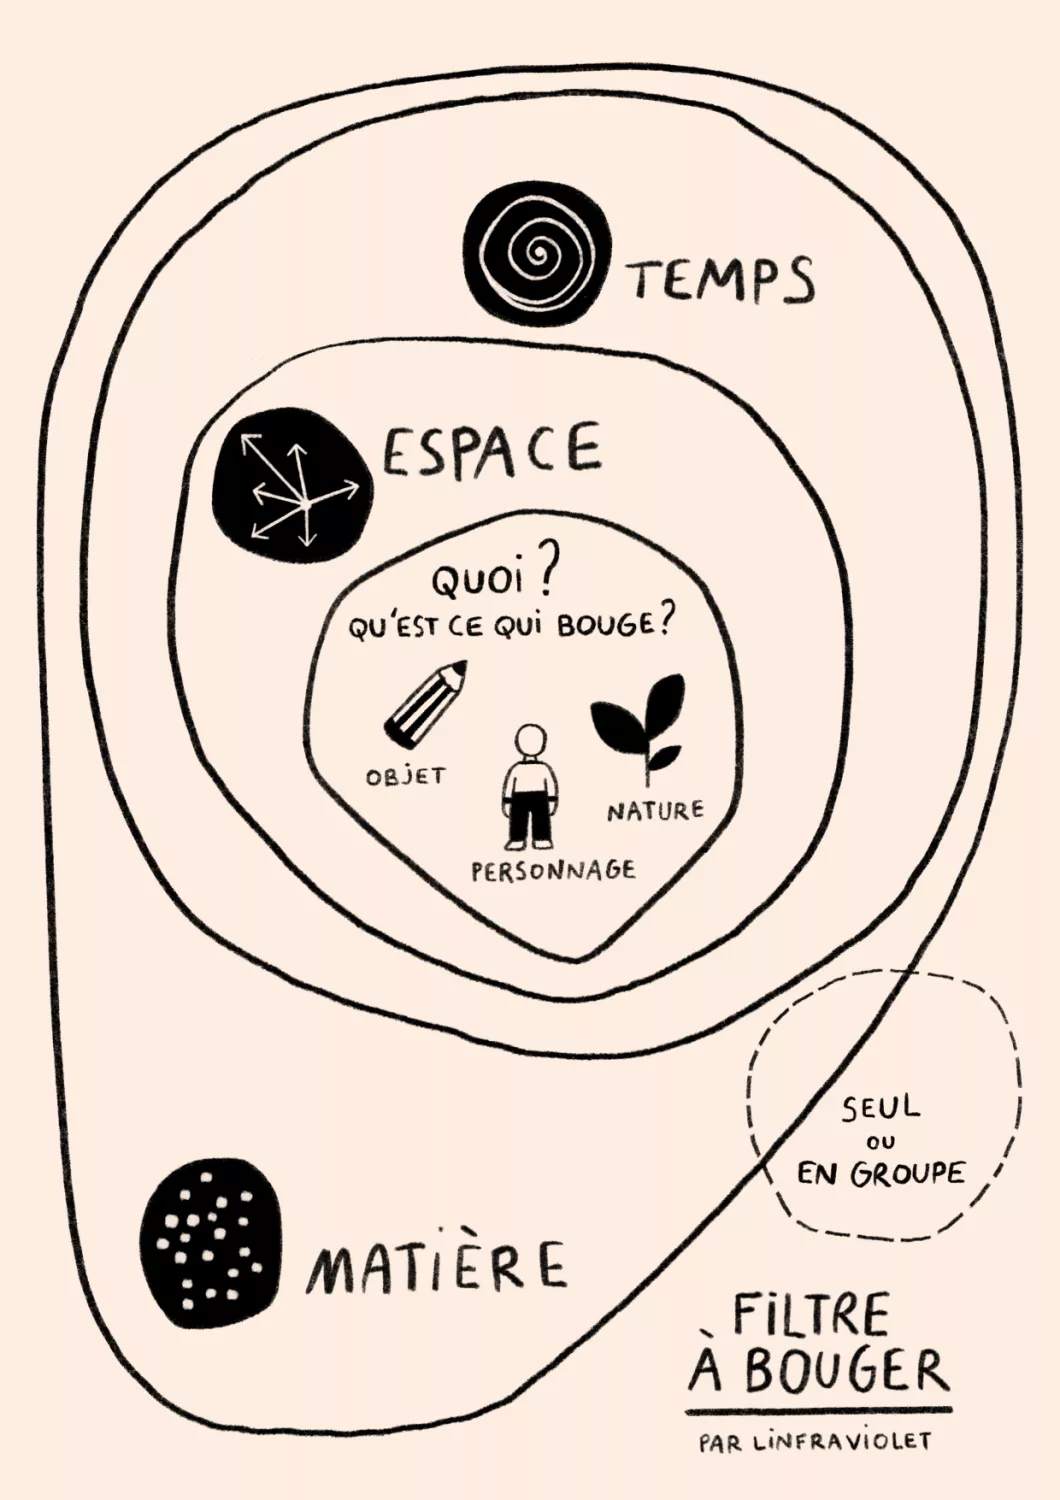 TEMPS
ESPACE
QUOI ?
QU'EST CE QUI BOUGE ?
OBJET
NATURE
PERSONNAGE
SEUL
OU
EN GROUPE
MATIÈRE
FILTRE
À BOUGER
PAR LINFRAVIOLET